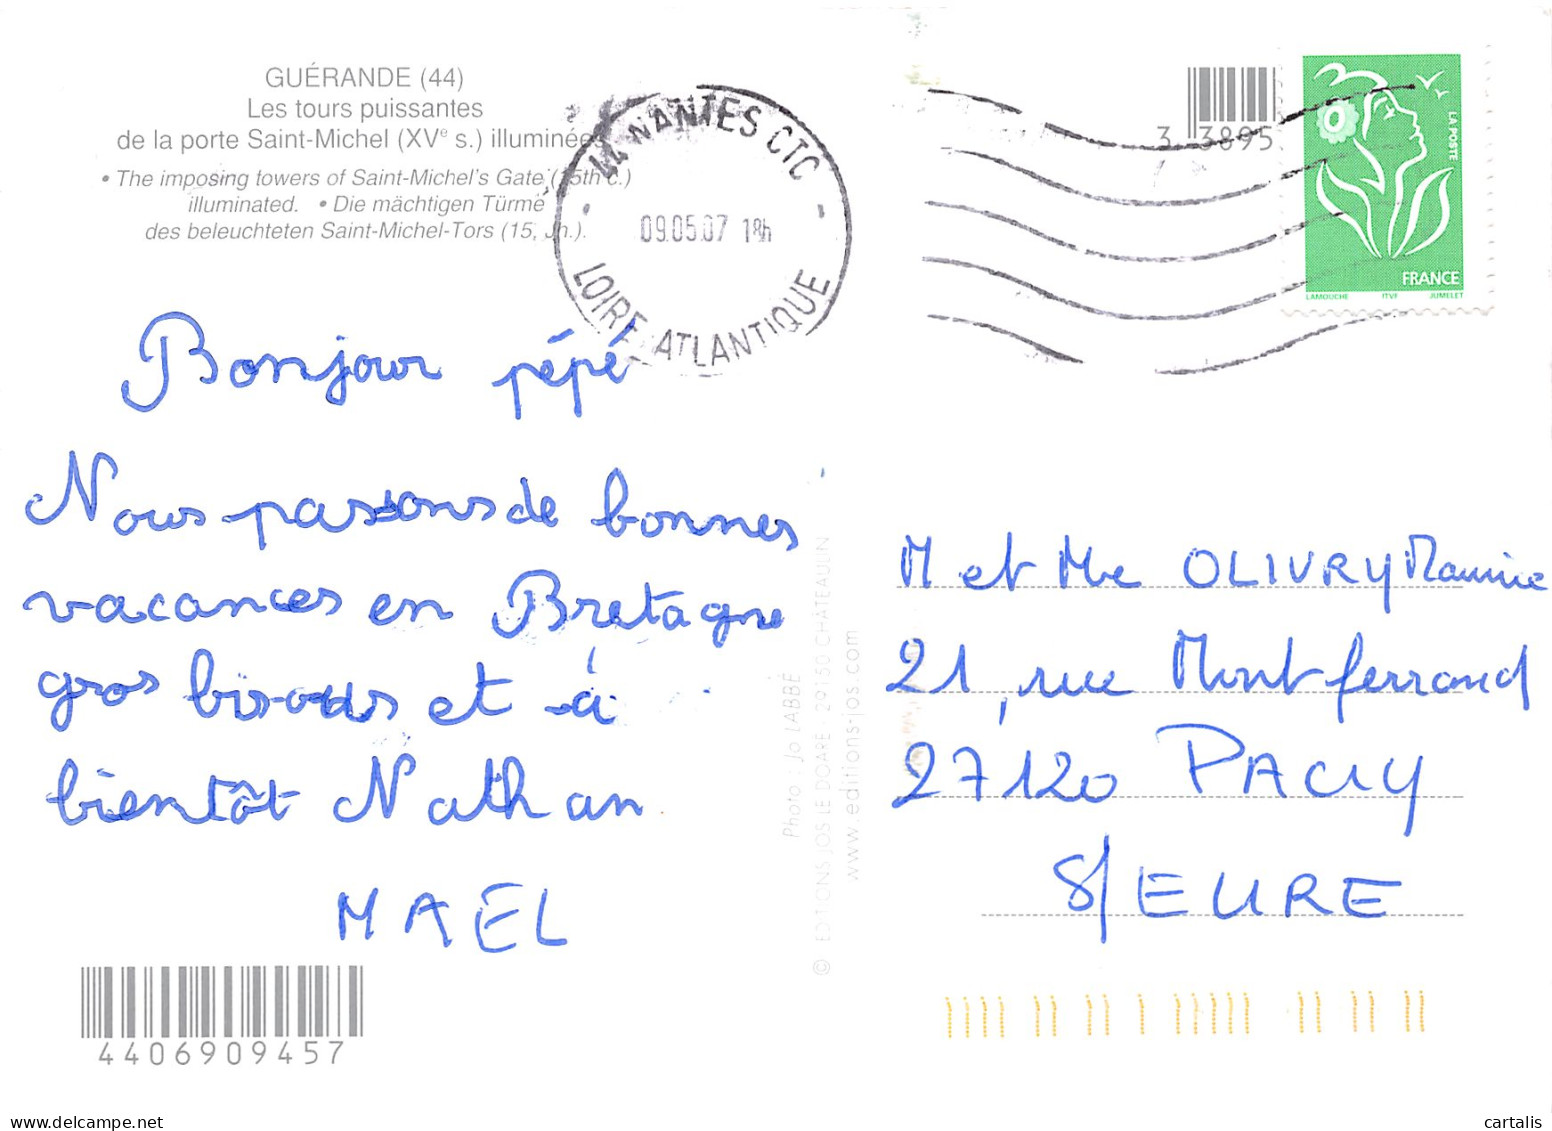 GUÉRANDE (44)
Les tours puissantes
de la porte Saint-Michel (XVe s.) illuminées
• The imposing towers of Saint-Michel's Gate (15th c.)
illuminated. • Die mächtigen Türme
des beleuchteten Saint-Michel-Tors (15, Jh.).
44 NANTES CTC
09.05.07 18h
LOIRE-ATLANTIQUE
3 3895
LA POSTE
FRANCE
LAMOUCHE ITVF JUMELET
Bonjour pépé
Nous passons de bonnes
vacances en Bretagne
gros bisous et à
bientôt Nathan
MAËL
Photo : Jo LABBÉ
© EDITIONS JOS LE DOARÉ 29150 CHATEAULIN
www.editions-jos.com
M et Me OLIVRY Maurice
21, rue Montferrand
27120 PACY
S/EURE
4406909457
delcampe.net
cartalis